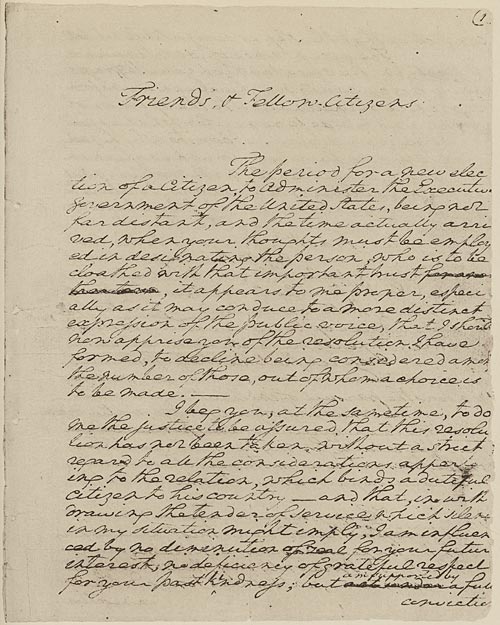 1
Friends, & Fellow-Citizens
The period for a new elec
tion of a Citizen, to administer the Executive
government of the United States, being not
far distant, and the time actually arri
ved, when your thoughts must be employ
ed in designating the person, who is to be
cloathed with that important trust for an
, it appears to me proper, especi
ally as it may conduce to a more distinct
expression of the public voice, that I should
now apprise you of the resolution I have
formed, to decline being considered among
the number of those, out of whom a choice is
to be made.—
I beg you, at the same time, to do
me the justice to be assured, that this resolu
tion has not been taken, without a strict
regard to all the considerations apper
ing to the relation, which binds a dutiful
Citizen to his country — and that, in with
drawing the tender of service which silence
in my situation might imply, I am influen
ced by no diminution of zeal for your future
interest, no deficiency of grateful respect
am supported by
for your past kindness; but act under a full
conviction